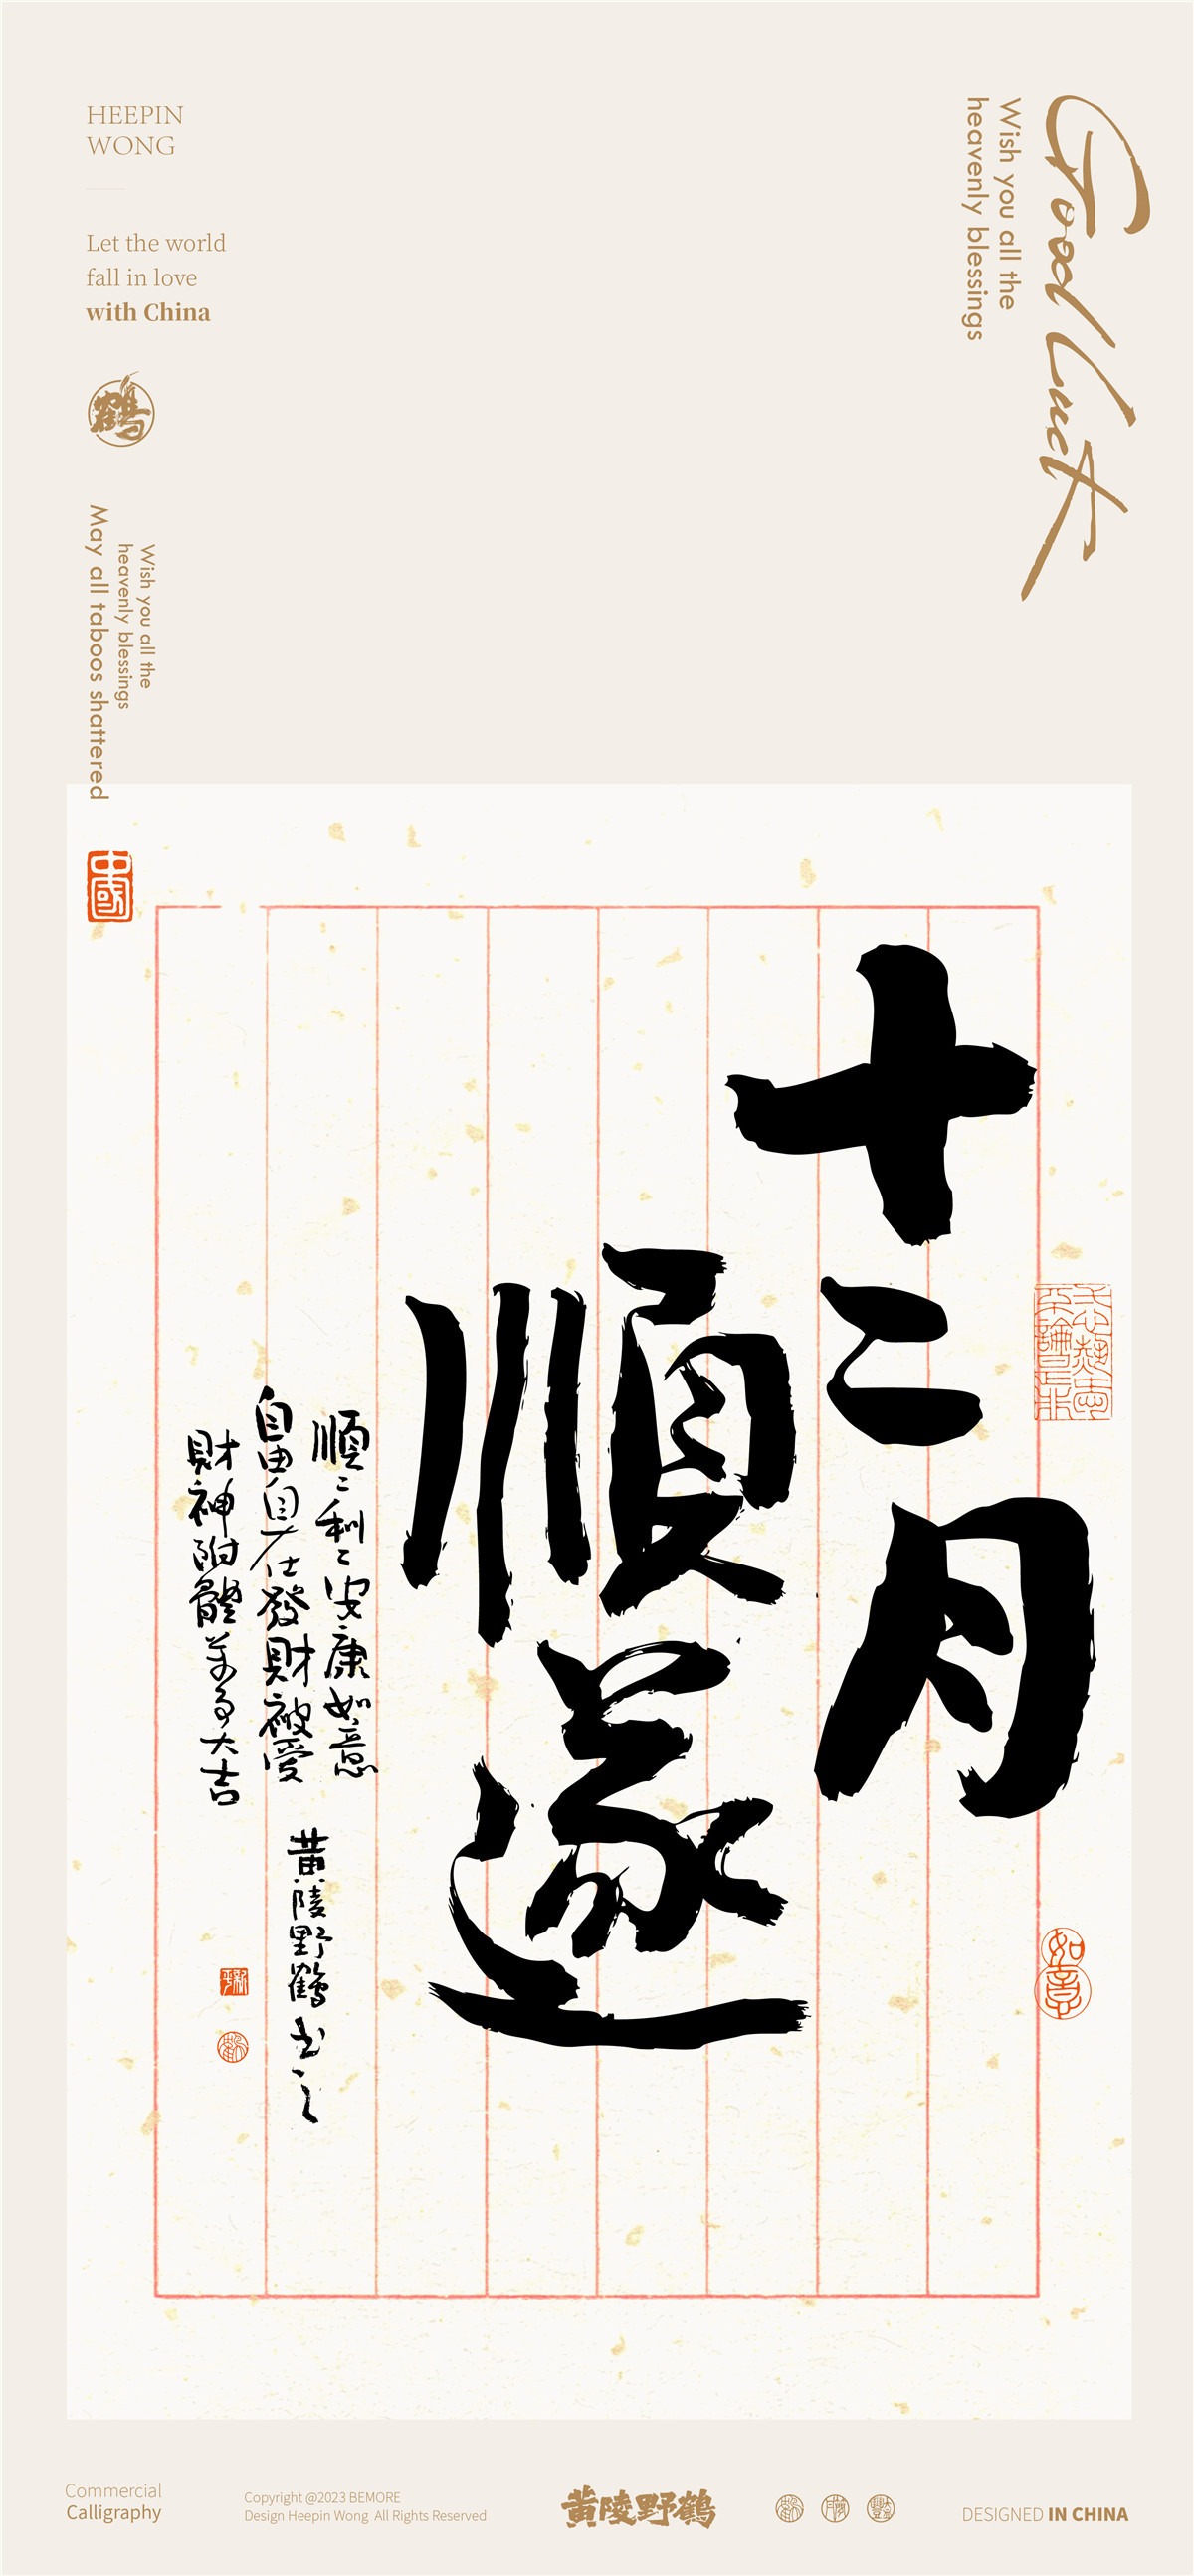 HEEPIN
WONG
Let the world
fall in love
with China
鶴
Wish you all the
heavenly blessings
May all taboos shattered
中國
Good luck
Wish you all the
heavenly blessings
十二月
順遂
順〻利〻安康如意
自由自在發財被愛
財神附體萬事大吉
黃陵野鶴书之
如意
Commercial
Calligraphy
Copyright @2023 BEMORE
Design Heepin Wong All Rights Reserved
黃陵野鶴
DESIGNED IN CHINA